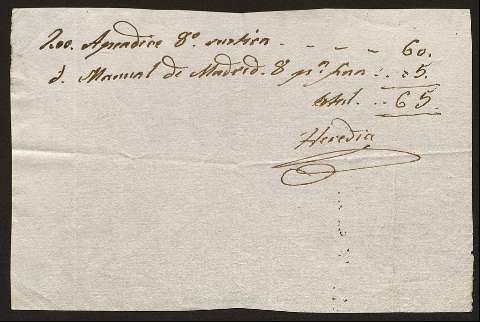 200. Apendice 8º. rustica - - - - 60.
d. Manual de Madrid. 8 pª. fina : . 5.
total. .. 65.
Heredia